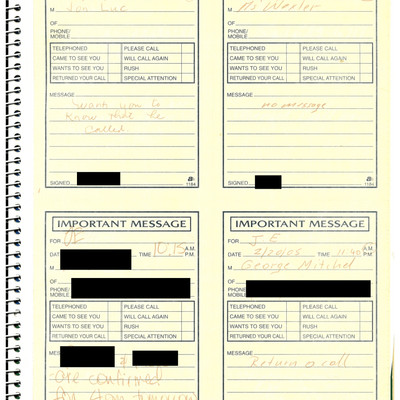 M Jon Luc
OF
PHONE/
MOBILE
TELEPHONED PLEASE CALL
CAME TO SEE YOU WILL CALL AGAIN
WANTS TO SEE YOU RUSH
RETURNED YOUR CALL SPECIAL ATTENTION
MESSAGE
want you to
know that he
called.
SIGNED
1184
M
OF
PHONE/
MOBILE
TELEPHONED PLEASE CALL
CAME TO SEE YOU WILL CALL AGAIN
WANTS TO SEE YOU RUSH
RETURNED YOUR CALL SPECIAL ATTENTION
MESSAGE
no message
SIGNED
1184
IMPORTANT MESSAGE
FOR JE
DATE TIME 10.15 A.M. P.M.
M
OF
PHONE/
MOBILE
TELEPHONED PLEASE CALL
CAME TO SEE YOU WILL CALL AGAIN
WANTS TO SEE YOU RUSH
RETURNED YOUR CALL SPECIAL ATTENTION
MES &
are confirmed
for
IMPORTANT MESSAGE
FOR J.E
DATE 2/20/05 TIME 11:40 A.M. P.M.
M George Mitchel
OF
PHONE/
MOBILE
TELEPHONED PLEASE CALL
CAME TO SEE YOU WILL CALL AGAIN
WANTS TO SEE YOU RUSH
RETURNED YOUR CALL SPECIAL ATTENTION
MESSAGE
Return a call